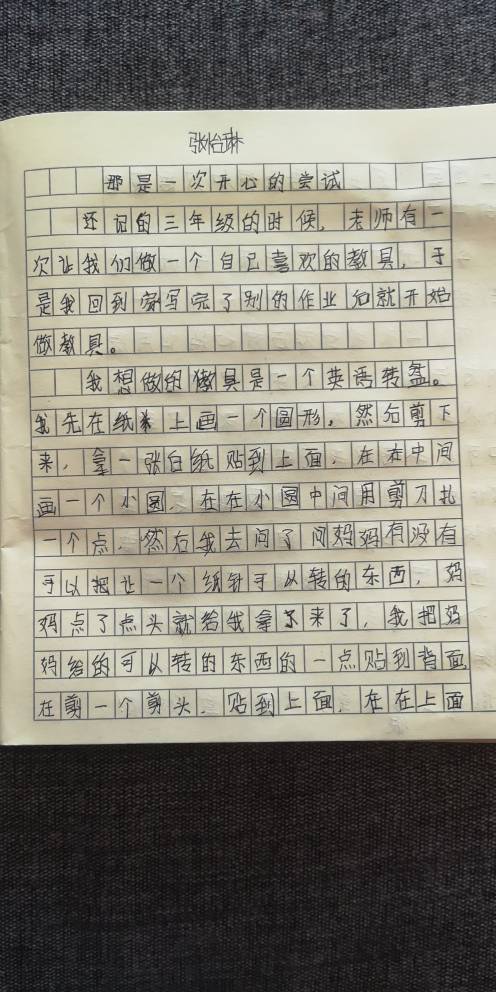 张怡琳
那是一次开心的尝试
还记的三年级的时候，老师有一
次让我们做一个自己喜欢的教具，于
是我回到家写完了别的作业后就开始
做教具。
我想做的教具是一个英语转盘。
我先在纸上画一个圆形，然后剪下
来，拿一张白纸贴到上面，在在中间
画一个小圆，在在小圆中间用剪刀扎
一个点，然后我去问了问妈妈有没有
可以把让一个纸针可以转的东西，妈
妈点了点头就给我拿来了，我把妈
妈给的可以转的东西的一点贴到背面
在剪一个剪头，贴到上面，在在上面